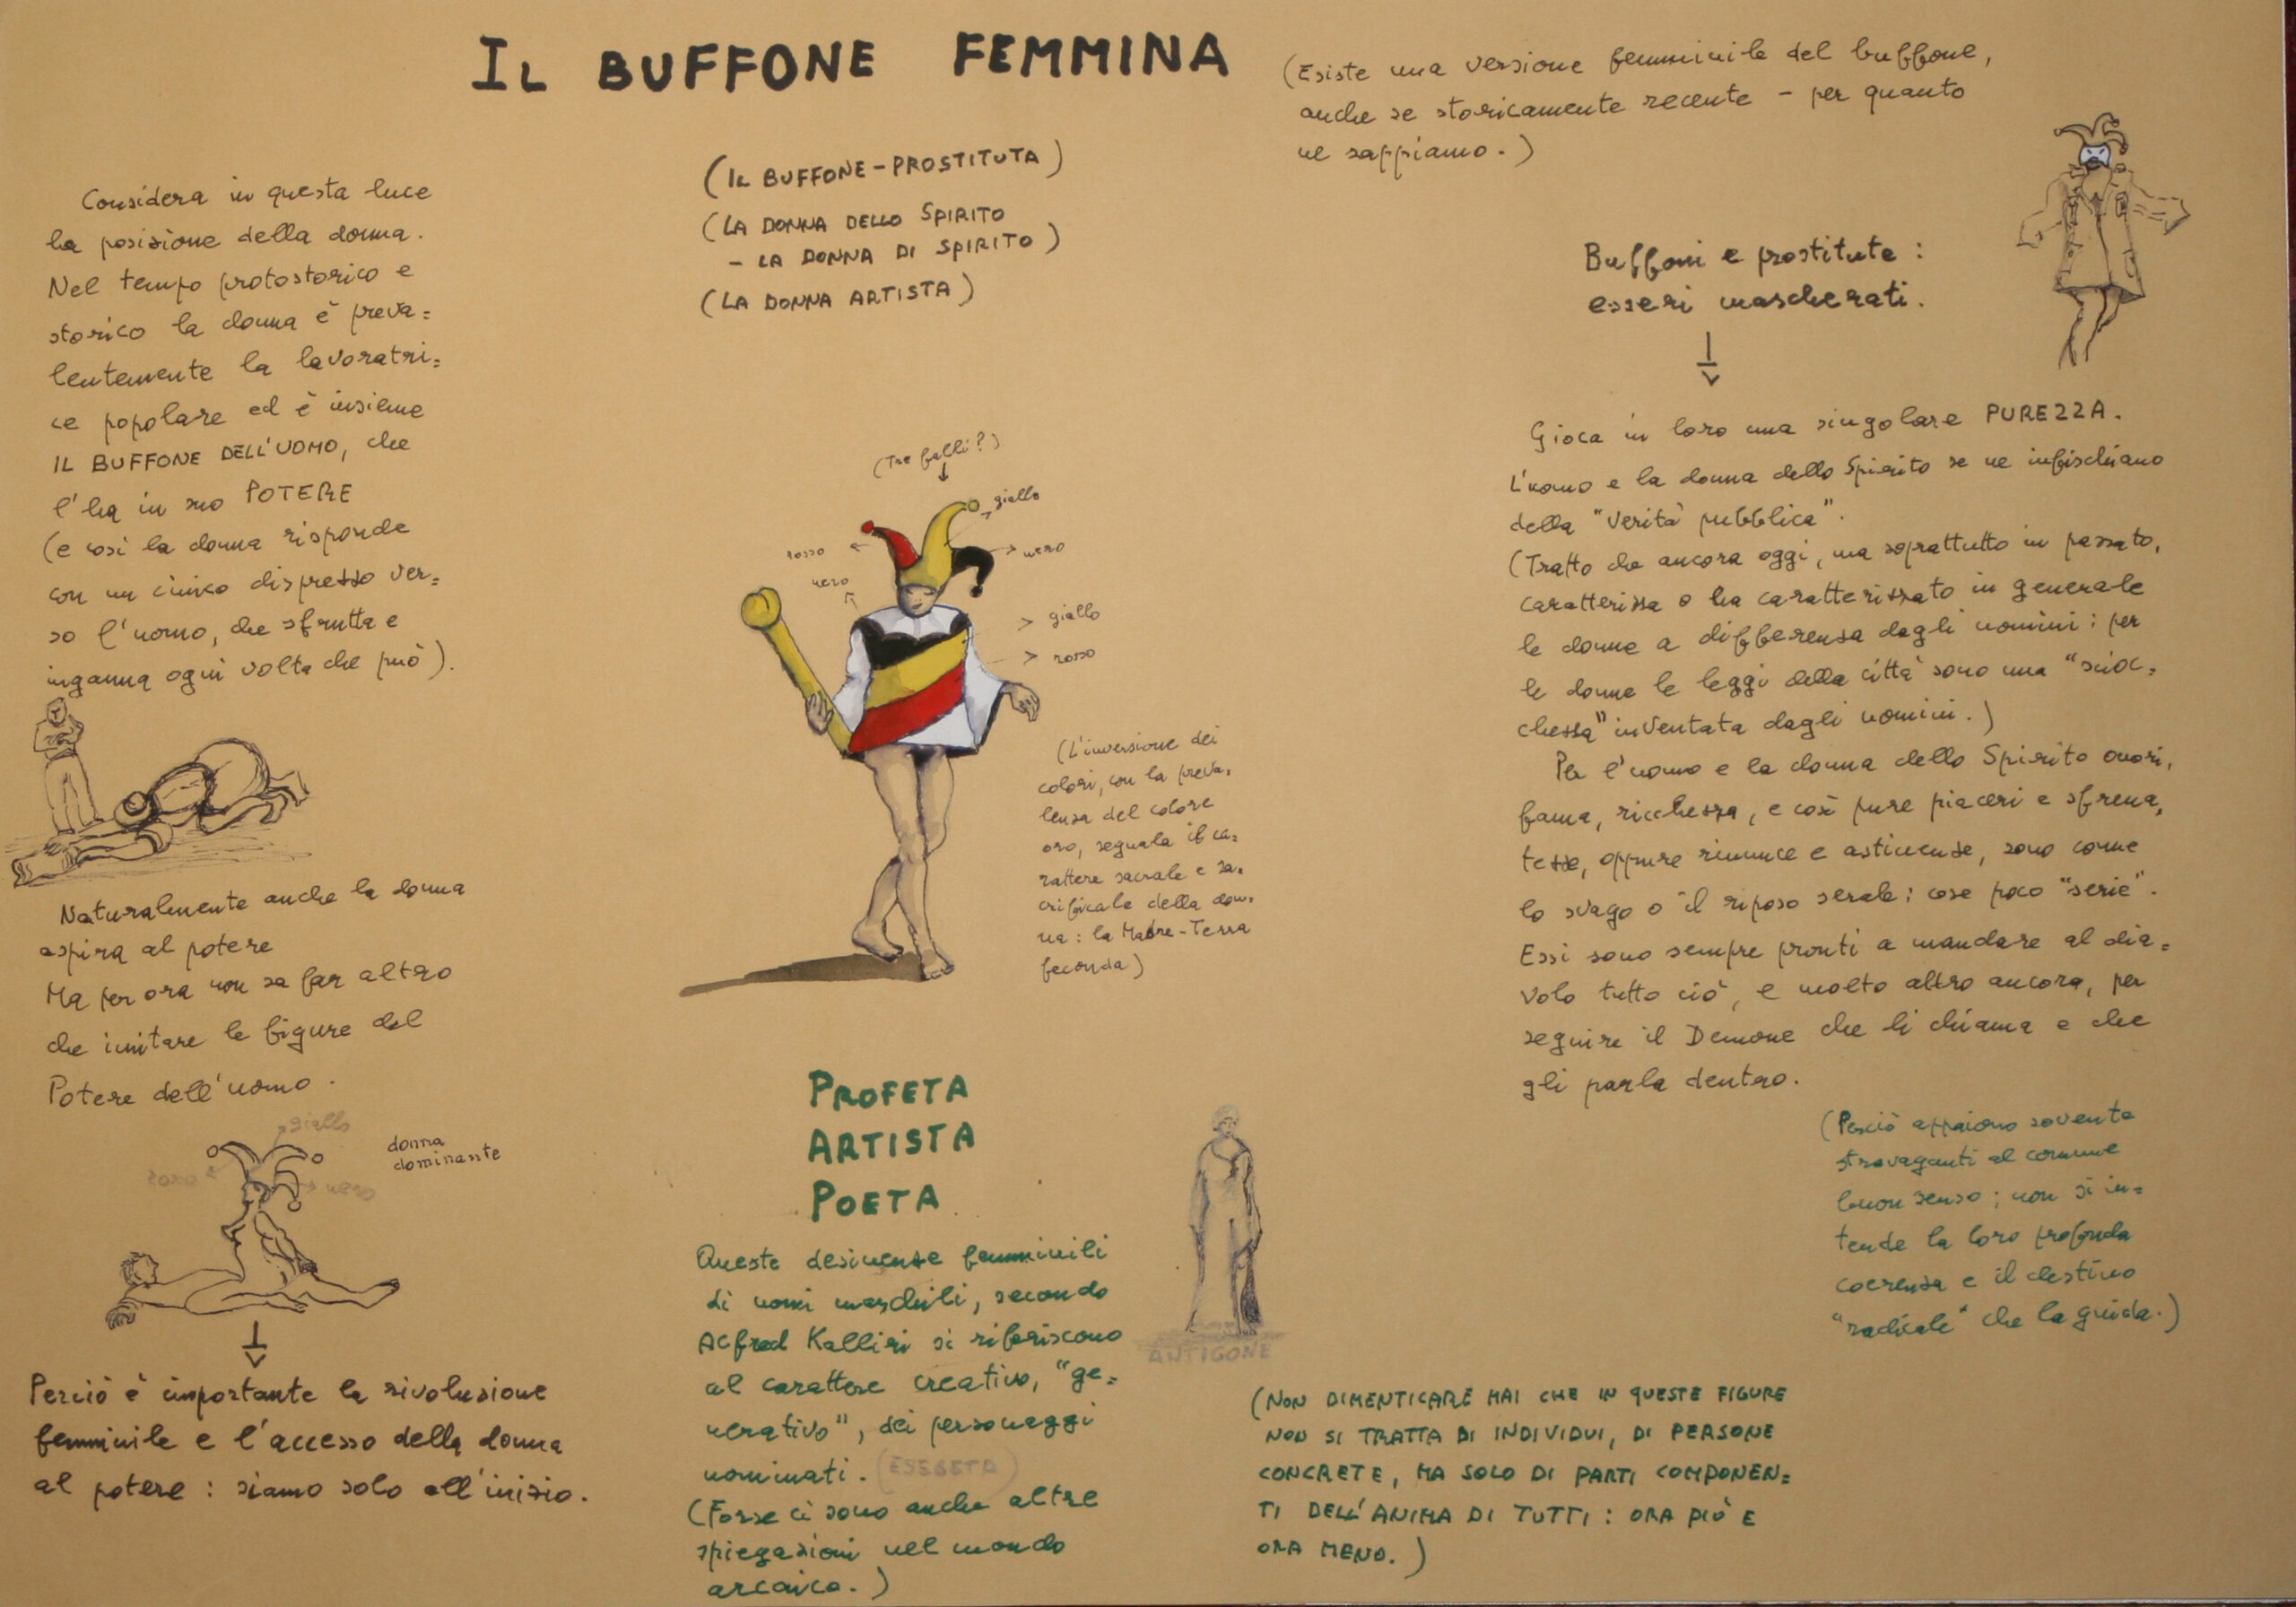 IL BUFFONE FEMMINA
(Esiste una versione femminile del buffone,
anche se storicamente recente - per quanto
ne sappiamo.)
(IL BUFFONE-PROSTITUTA)
(LA DONNA DELLO SPIRITO
- LA DONNA DI SPIRITO)
(LA DONNA ARTISTA)
Considera in questa luce
la posizione della donna.
Nel tempo protostorico e
storico la donna è preva=
lentemente la lavoratri=
ce popolare ed è insieme
IL BUFFONE DELL'UOMO, che
l'ha in suo POTERE
(e così la donna risponde
con un cinico disprezzo ver=
so l'uomo, che sfrutta e
inganna ogni volta che può).
Naturalmente anche la donna
aspira al potere
Ma per ora non sa far altro
che imitare le figure del
Potere dell'uomo.
giallo
rosso
nero
donna
dominante
Perciò è importante la rivoluzione
femminile e l'accesso della donna
al potere: siamo solo all'inizio.
(Tre falli?)
giallo
rosso
nero
nero
giallo
rosso
(L'inversione dei
colori, con la preva=
lenza del colore
oro, segnala il ca=
rattere sacrale e sa=
crificale della don=
na: la Madre-Terra
feconda)
PROFETA
ARTISTA
POETA
Queste desinenze femminili
di nomi maschili, secondo
Alfred Kalliri si riferiscono
al carattere creativo, "ge=
nerativo", dei personaggi
nominati. (ESEGETA)
(Forse ci sono anche altre
spiegazioni nel mondo
arcaico.)
ANTIGONE
Buffoni e prostitute:
esseri mascherati.
Gioca in loro una singolare PUREZZA.
L'uomo e la donna dello Spirito se ne infischiano
della "Verità pubblica".
(Tratto che ancora oggi, ma soprattutto in passato,
caratterizza o ha caratterizzato in generale
le donne a differenza degli uomini: per
le donne le leggi della città sono una "scioc=
chezza" inventata dagli uomini.)
Per l'uomo e la donna dello Spirito onori,
fama, ricchezza, e così pure piaceri e sfrena=
tezze, oppure rinunce e astinenze, sono come
lo svago o il riposo serale: cose poco "serie".
Essi sono sempre pronti a mandare al dia=
volo tutto ciò, e molto altro ancora, per
seguire il Demone che li chiama e che
gli parla dentro.
(Perciò appaiono sovente
stravaganti al comune
buon senso; non si in=
tende la loro profonda
coerenza e il destino
"radicale" che la guida.)
(NON DIMENTICARE MAI CHE IN QUESTE FIGURE
NON SI TRATTA DI INDIVIDUI, DI PERSONE
CONCRETE, MA SOLO DI PARTI COMPONEN=
TI DELL'ANIMA DI TUTTI: ORA PIÙ E
ORA MENO.)